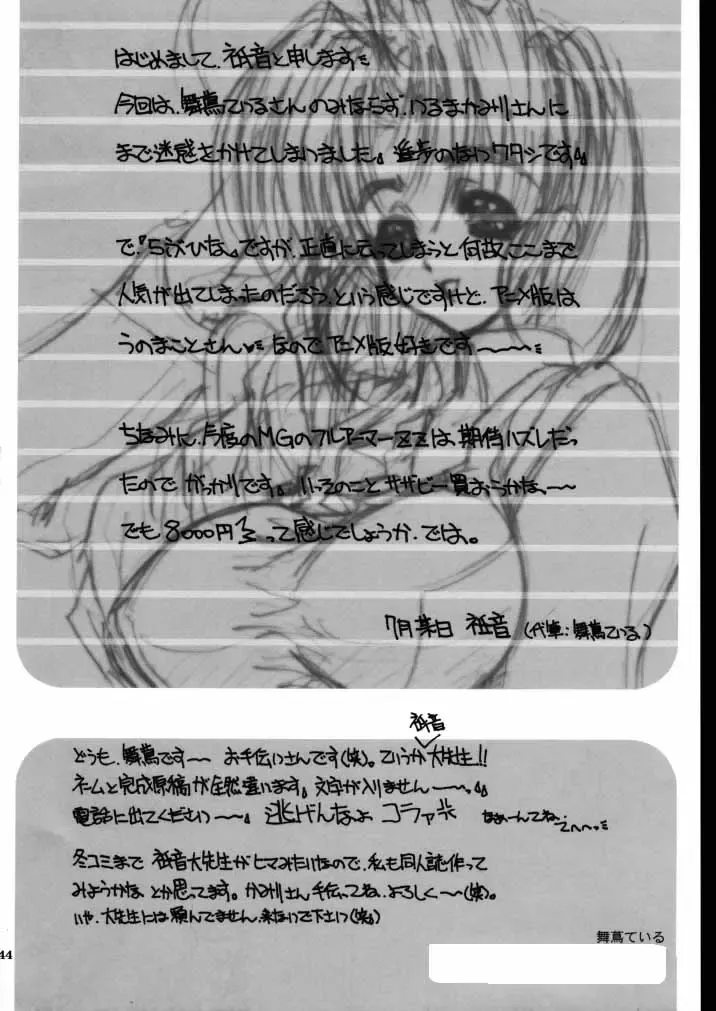 はじめまして、祇音と申します
今回は、舞蔦ているさんのみならず、いるまかみりさんに
まで迷惑をかけてしまいました。進歩のないワタシです。
で『らぶひな』ですが、正直に云ってしまうと何故、ここまで
人気が出てしまったのだろう、という感じですけど、アニメ版は
うのまことさん♥なのでアニメ版好きです〜〜〜
ちなみに、今度のMGのフルアーマーZZは、期待ハズレだっ
たのでがっかりです。いっそのことサザビー買おうかな、〜〜
でも8000円って感じでしょうか、では。
7月某日 祇音(代筆:舞蔦ている)
祇音
どうも、舞蔦です〜〜 お手伝いさんです(笑)。ていうか大先生!!
ネームと完成原稿が全然違います。文字が入りません〜〜。
電話に出てください〜〜。逃げんなよ コラァ なぁーんてね、
てへへっ
冬コミまで 祇音大先生がヒマみたいなので、私も同人誌作って
みようかな、とか思ってます。かみりさん手伝ってね、よろしく〜〜(笑)。
いや、大先生には頼んでません、来ないで下さいっ(笑)
舞蔦ている
44